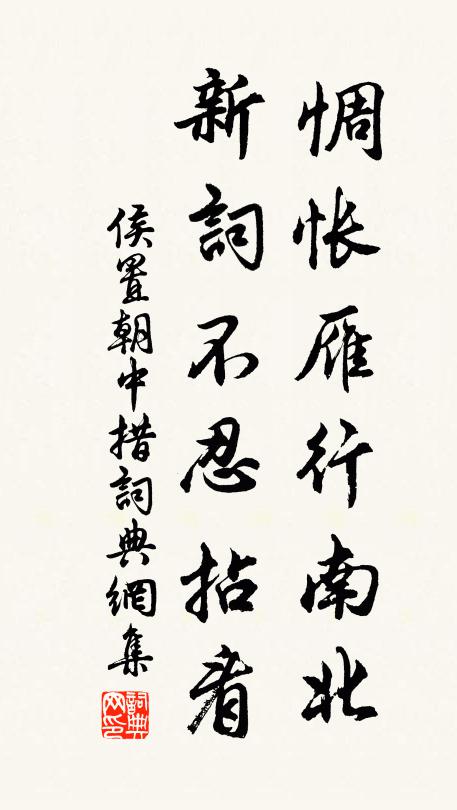 惆怅雁行南北
新詞不忍拈看
侯置朝中措詞典網集
詞典
网印